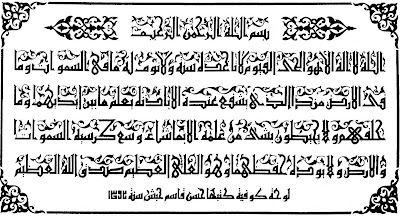 بسم الله الرحمن الرحيم
الله لا اله الا هو الحي القيوم لا تاخذه سنة ولا نوم له ما في السموات وما
في الارض من ذا الذي يشفع عنده الا باذنه يعلم ما بين ايديهم وما
خلفهم ولا يحيطون بشئ من علمه الا بما شاء وسع كرسيه السموات
والارض ولا يوده حفظهما وهو العلي العظيم صدق الله العظيم
لوحة كوفية كتبها حسن قاسم حبش سنة